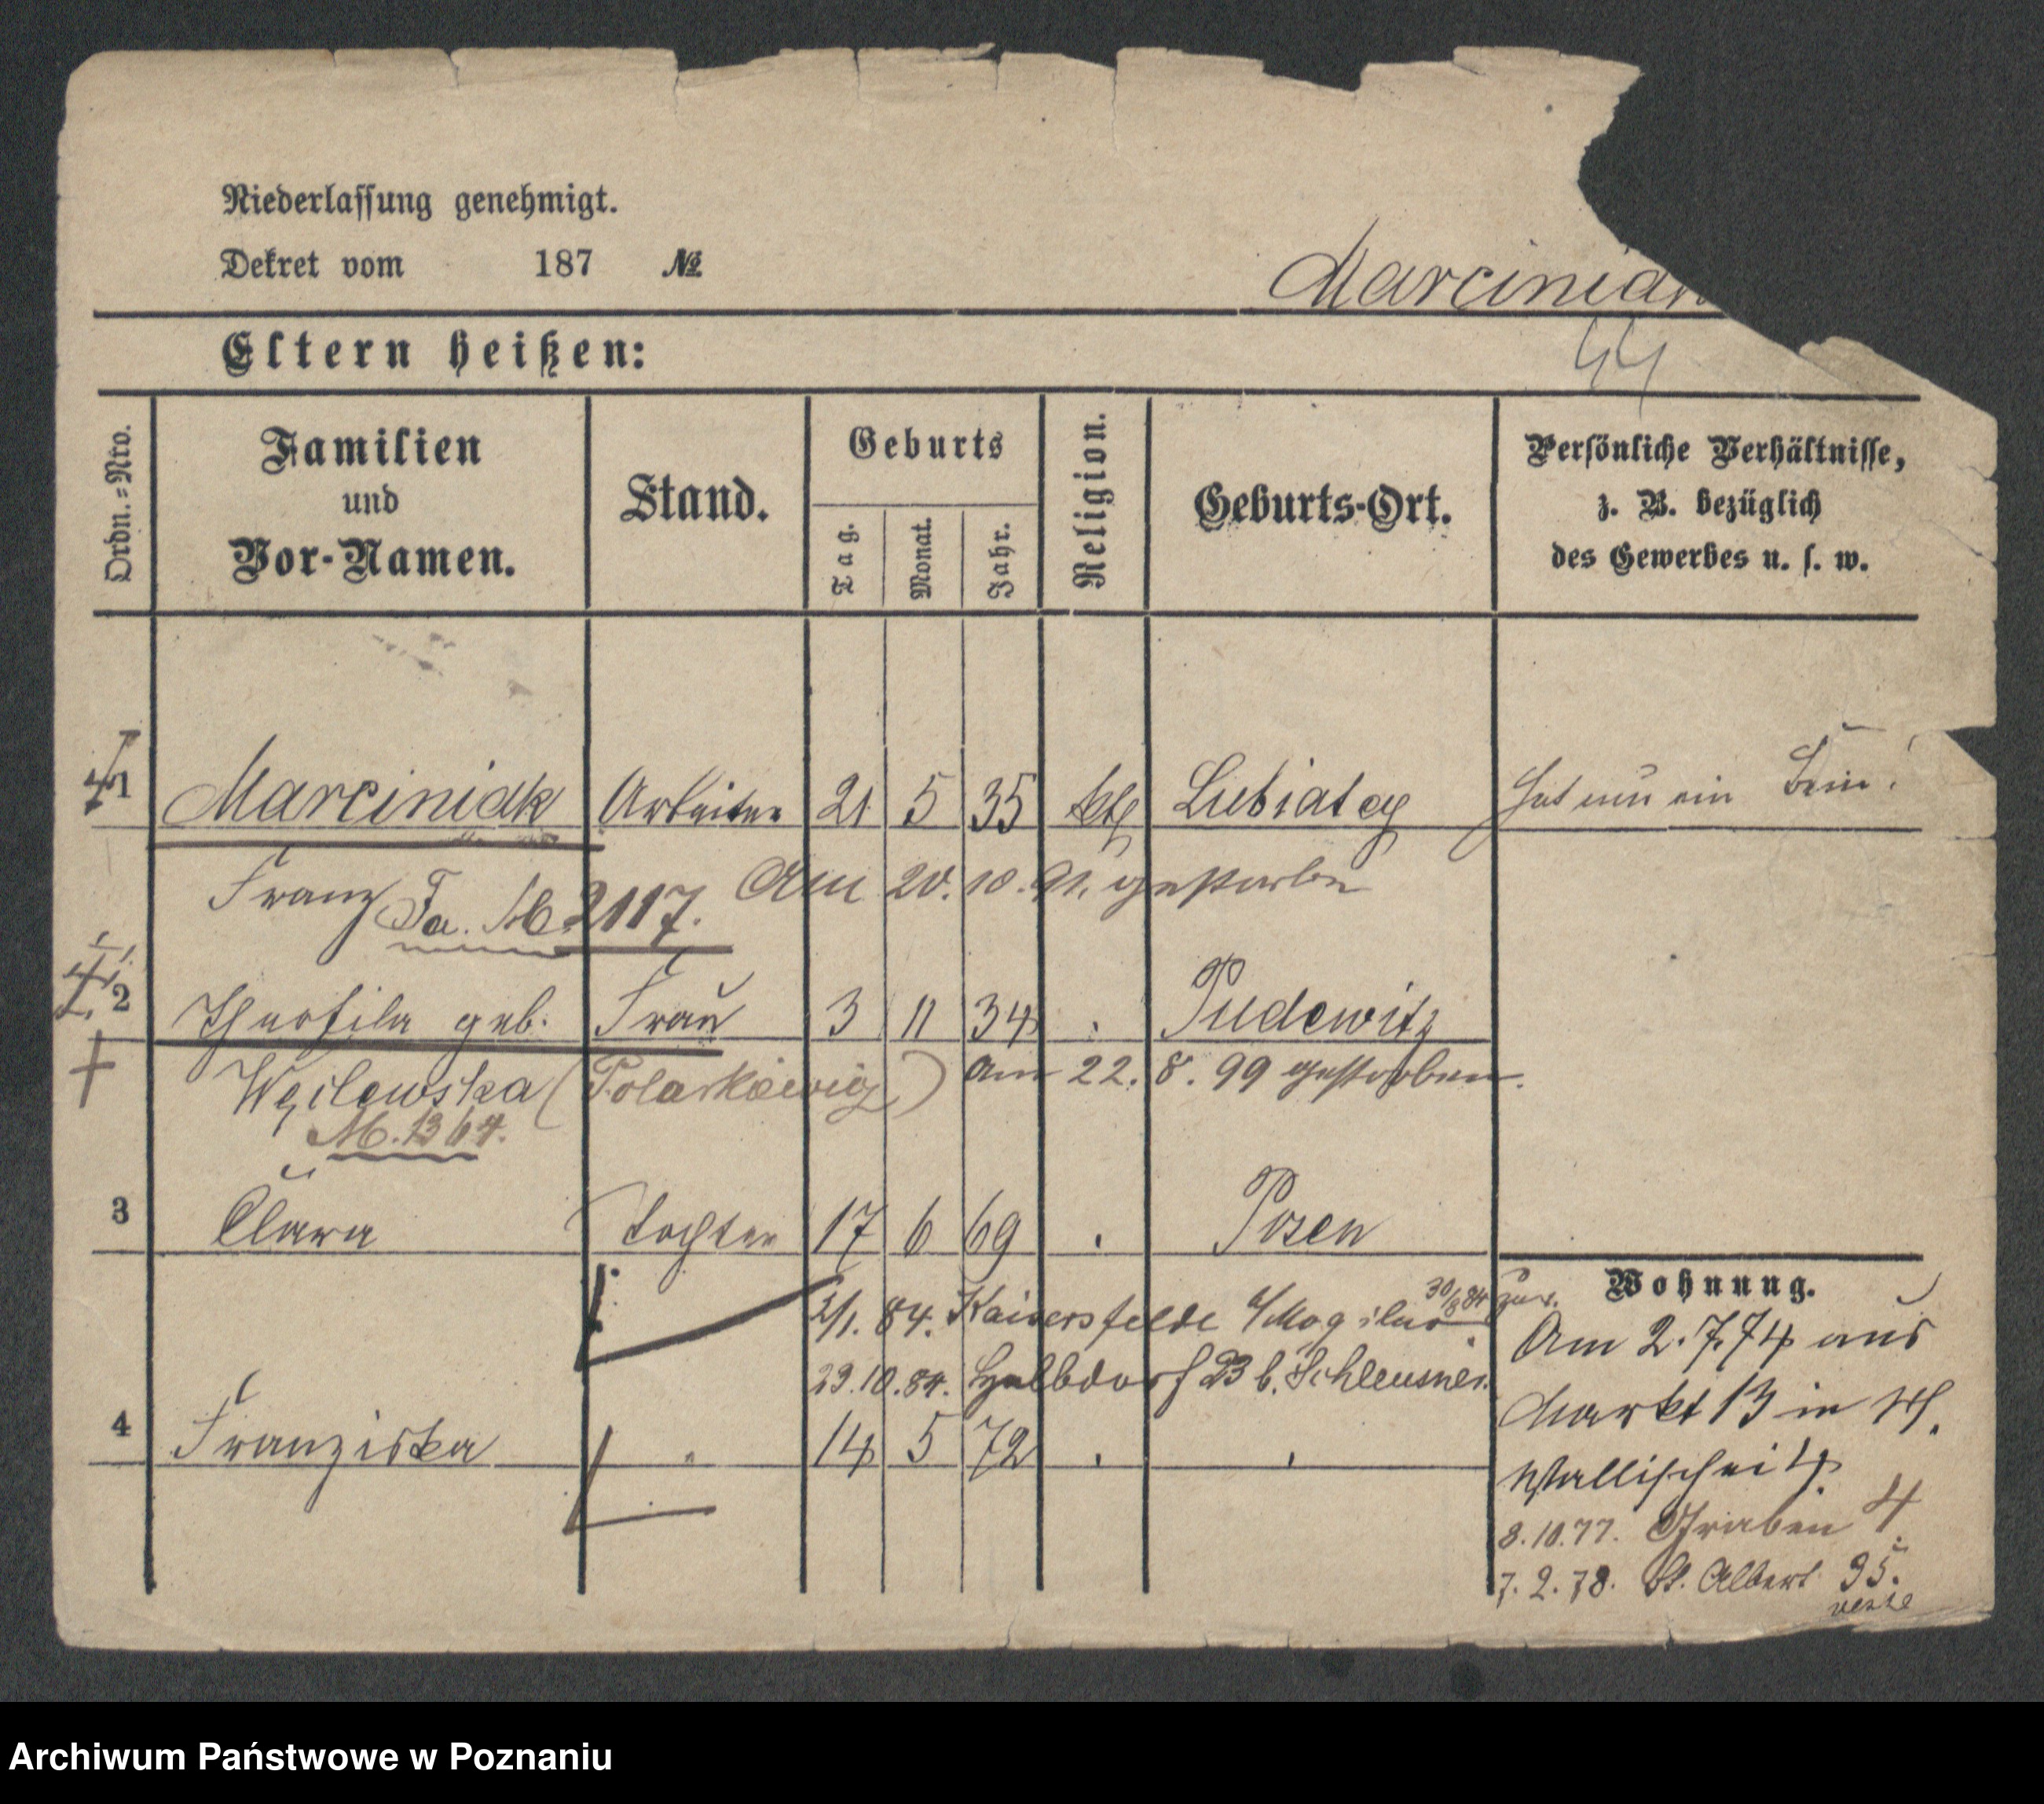 Niederlassung genehmigt.
Dekret vom 187 №
Marciniak
44
Eltern heißen:
Ordn.=Nro.
Familien
und
Vor-Namen.
Stand.
Geburts
Tag.
Monat.
Jahr.
Religion.
Geburts-Ort.
Persönliche Verhältnisse,
z. B. bezüglich
des Gewerbes u. s. w.
1 Marciniak Arbeiter 21 5 35 kth Lubiatey Hat nur ein Bein!
Franz Fa. M. 2117. Am 20. 10. 91. gestorben
2 Theofila geb. Frau 3 11 34 . Pudewitz
Węclewska (Polarkiewicz) am 22. 8. 99 gestorben.
M. 1364.
3 Clara Tochter 17 6 69 . Posen
2/1. 84. Kaisersfelde Mogilno 30/8 84 zur.
29.10.84. 23 b. Schleusner.
4 Franziska " 14 5 72 . .
Wohnung.
Am 2.7.74 aus
Markt 13 in
Wallischei 4.
8.10.77. Graben 4.
7.2.78. St. Adalbert 35.